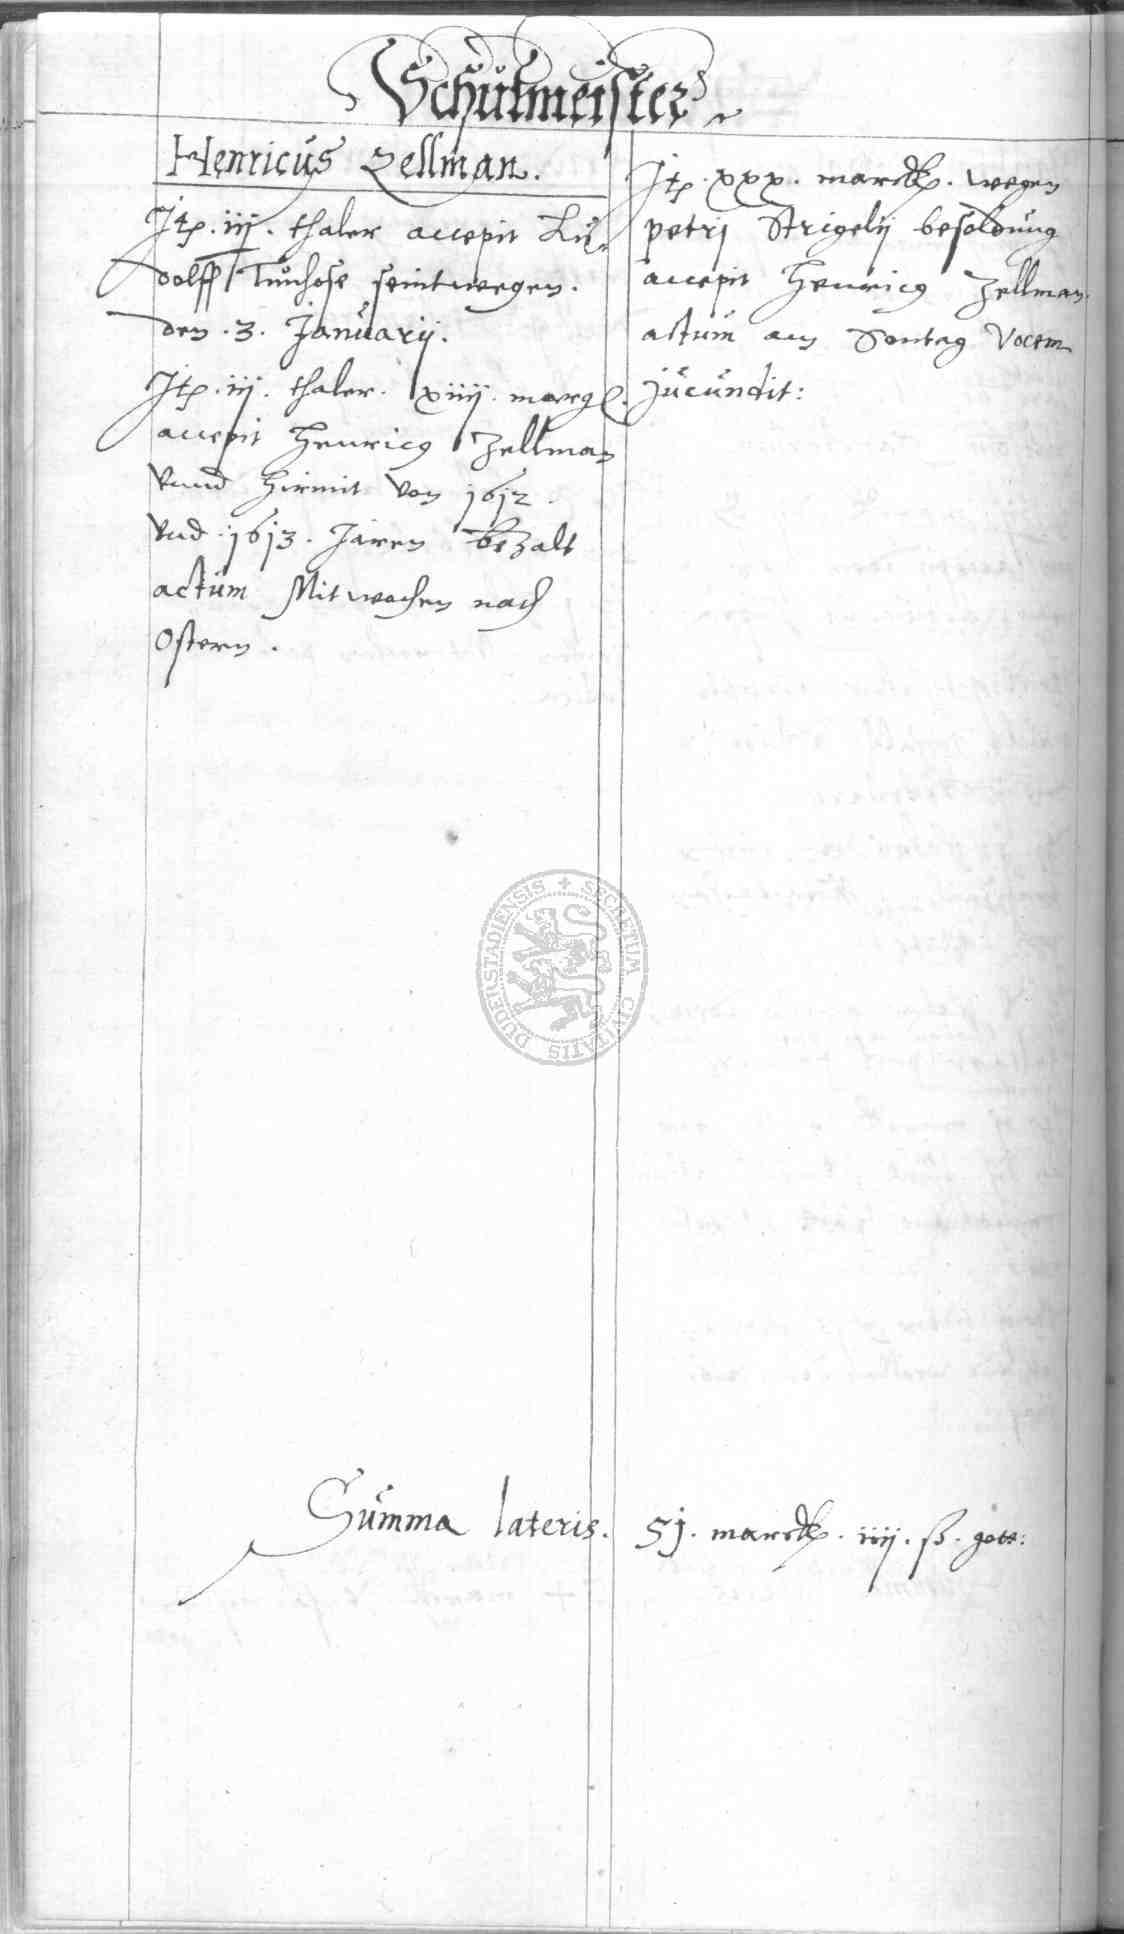 Schulmeister
Henricus Zellman.
Itp. iij. thaler accepit Lu„
dolff Tunhose seintwegen.
den .3. Januarij.
Itp. iij. thaler. xiiij. marg
accepit Henricus Zellman
Vnnd hirmit von 1612.
Vnd .1613. Jaren bezalt
actum Mitwochen nach
Ostern.
Itp. xxx. marck. wegen
petri Strigelij besoldung
accepit Henricus Zellman.
actum am Sontag Vocem
jucundit:
SECRETUM CIVITATIS DUDERSTADIENSIS
Summa lateris. 51. marck. iiij. ß. gott: